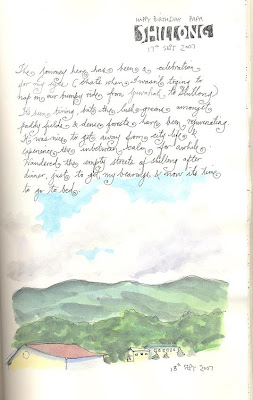 HAPPY BIRTHDAY PAPA
SHILLONG
17TH SEPT 2007
The journey here has been a celebration
for my eyes (that's when I wasn't trying to
nap on our bumpy ride from Guwahati to Shillong)
It's been tiring, but the lush greens amongst
paddy fields & dense forests have been rejuvenating.
It was nice to get away from city life &
experience the inbetween calm for awhile.
Wandered the empty streets of shillong after
dinner, just to get my bearings & now its time
to go to bed.
18TH SEPT 2007